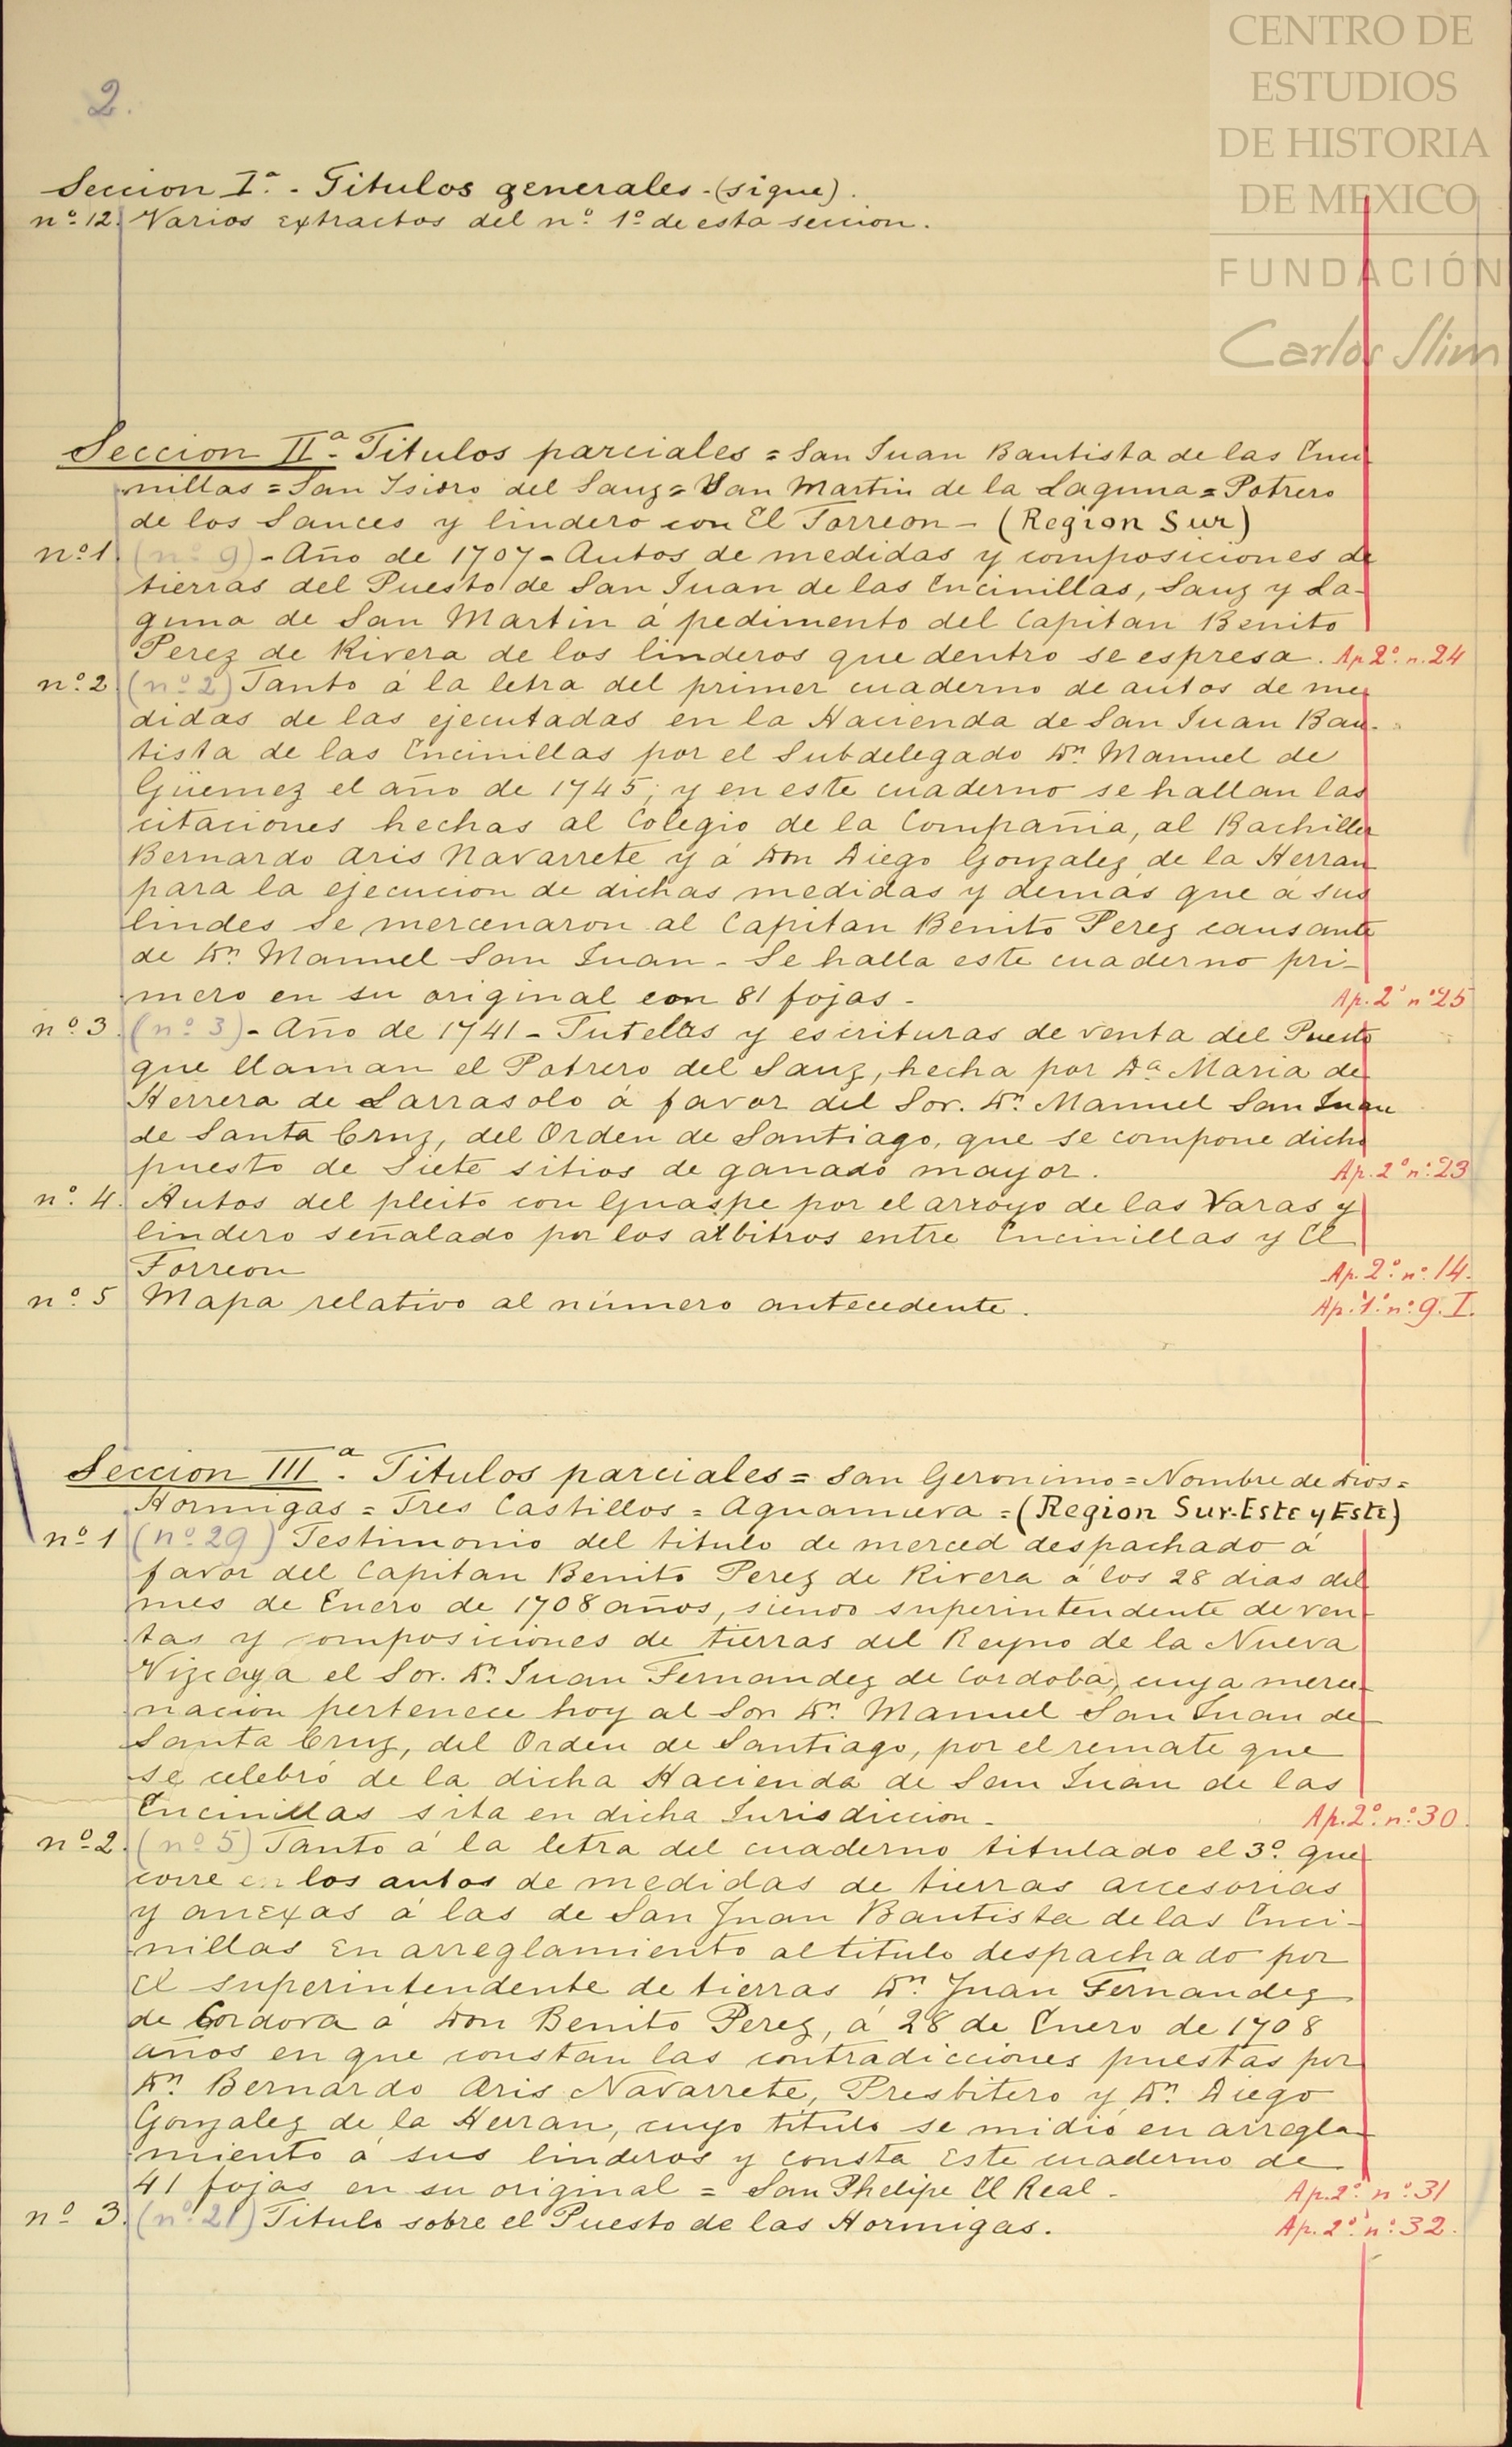 CENTRO DE
ESTUDIOS
DE HISTORIA
DE MEXICO
FUNDACIÓN
Carlos Slim
2.
Seccion Iª. - Titulos generales - (sigue).
nº 12. Varios extractos del nº 1º de esta seccion.
Seccion IIª - Titulos parciales = San Juan Bautista de las Enci
nillas = San Isidro del Sauz = San Martin de la Laguna = Potrero
de los Sauces y lindero con El Torreon - (Region Sur)
nº 1 (nº 9) - Año de 1707 - Autos de medidas y composiciones de
tierras del Puesto de San Juan de las Encinillas, Sauz y La-
guna de San Martin á pedimento del Capitan Benito
Perez de Rivera de los linderos que dentro se espresa. Ap 2º. n. 24
nº 2 (nº 2) Tanto á la letra del primer cuaderno de autos de me
didas de las ejecutadas en la Hacienda de San Juan Bau-
tista de las Encinillas por el Subdelegado Dn. Manuel de
Güemez el año de 1745; y en este cuaderno se hallan las
citaciones hechas al Colegio de la Compañia, al Bachiller
Bernardo Aris Navarrete y á Don Diego Gonzalez de la Herran
para la ejecucion de dichas medidas y demás que á sus
lindes se mercenaron al Capitan Benito Perez causante
de Dn. Manuel San Juan - Se halla este cuaderno pri-
mero en su original con 81 fojas - Ap. 2º nº 25
nº 3. (nº 3) - Año de 1741 - Tutelas y escrituras de venta del Puesto
que llaman el Potrero del Sauz, hecha por Da. Maria de
Herrera de Larrasolo á favor del Sor. Dn. Manuel San Juan
de Santa Cruz, del Orden de Santiago, que se compone dicho
puesto de siete sitios de ganado mayor. Ap. 2º nº 23
nº. 4. Autos del pleito con Guaspe por el arroyo de las Varas y
lindero señalado por los albitros entre Encinillas y El
Torreon Ap. 2º. nº. 14.
nº. 5 Mapa relativo al número antecedente. Ap. 1º. nº. 9. I.
Seccion IIIª. Titulos parciales = San Geronimo = Nombre de Dios =
Hormigas = Tres Castillos = Aguanueva = (Region Sur-Este y Este)
nº 1 (nº 29) Testimonio del titulo de merced despachado á
favor del Capitan Benito Perez de Rivera á los 28 dias del
mes de Enero de 1708 años, siendo superintendente de ven-
tas y composiciones de tierras del Reyno de la Nueva
Vizcaya el Sor. Dn. Juan Fernandez de Cordoba, cuya merce-
nacion pertenece hoy al Sor Dn. Manuel San Juan de
Santa Cruz, del Orden de Santiago, por el remate que
se celebró de la dicha Hacienda de San Juan de las
Encinillas sita en dicha Jurisdiccion - Ap. 2º. nº. 30.
nº 2. (nº 5) Tanto á la letra del cuaderno titulado el 3º. que
corre en los autos de medidas de tierras accesorias
y anexas á las de San Juan Bautista de las Enci-
nillas en arreglamiento al titulo despachado por
el superintendente de tierras Dn. Juan Fernandez
de Cordova á Don Benito Perez, á 28 de Enero de 1708
años en que constan las contradicciones puestas por
Dn. Bernardo Aris Navarrete, Presbitero y Dn. Diego
Gonzalez de la Herran, cuyo titulo se midió en arregla-
miento á sus linderos y consta este cuaderno de
41 fojas en su original = San Phelipe El Real - Ap. 2º. nº. 31
nº 3. (nº 21) Titulo sobre el Puesto de las Hormigas. Ap. 2º. nº. 32.